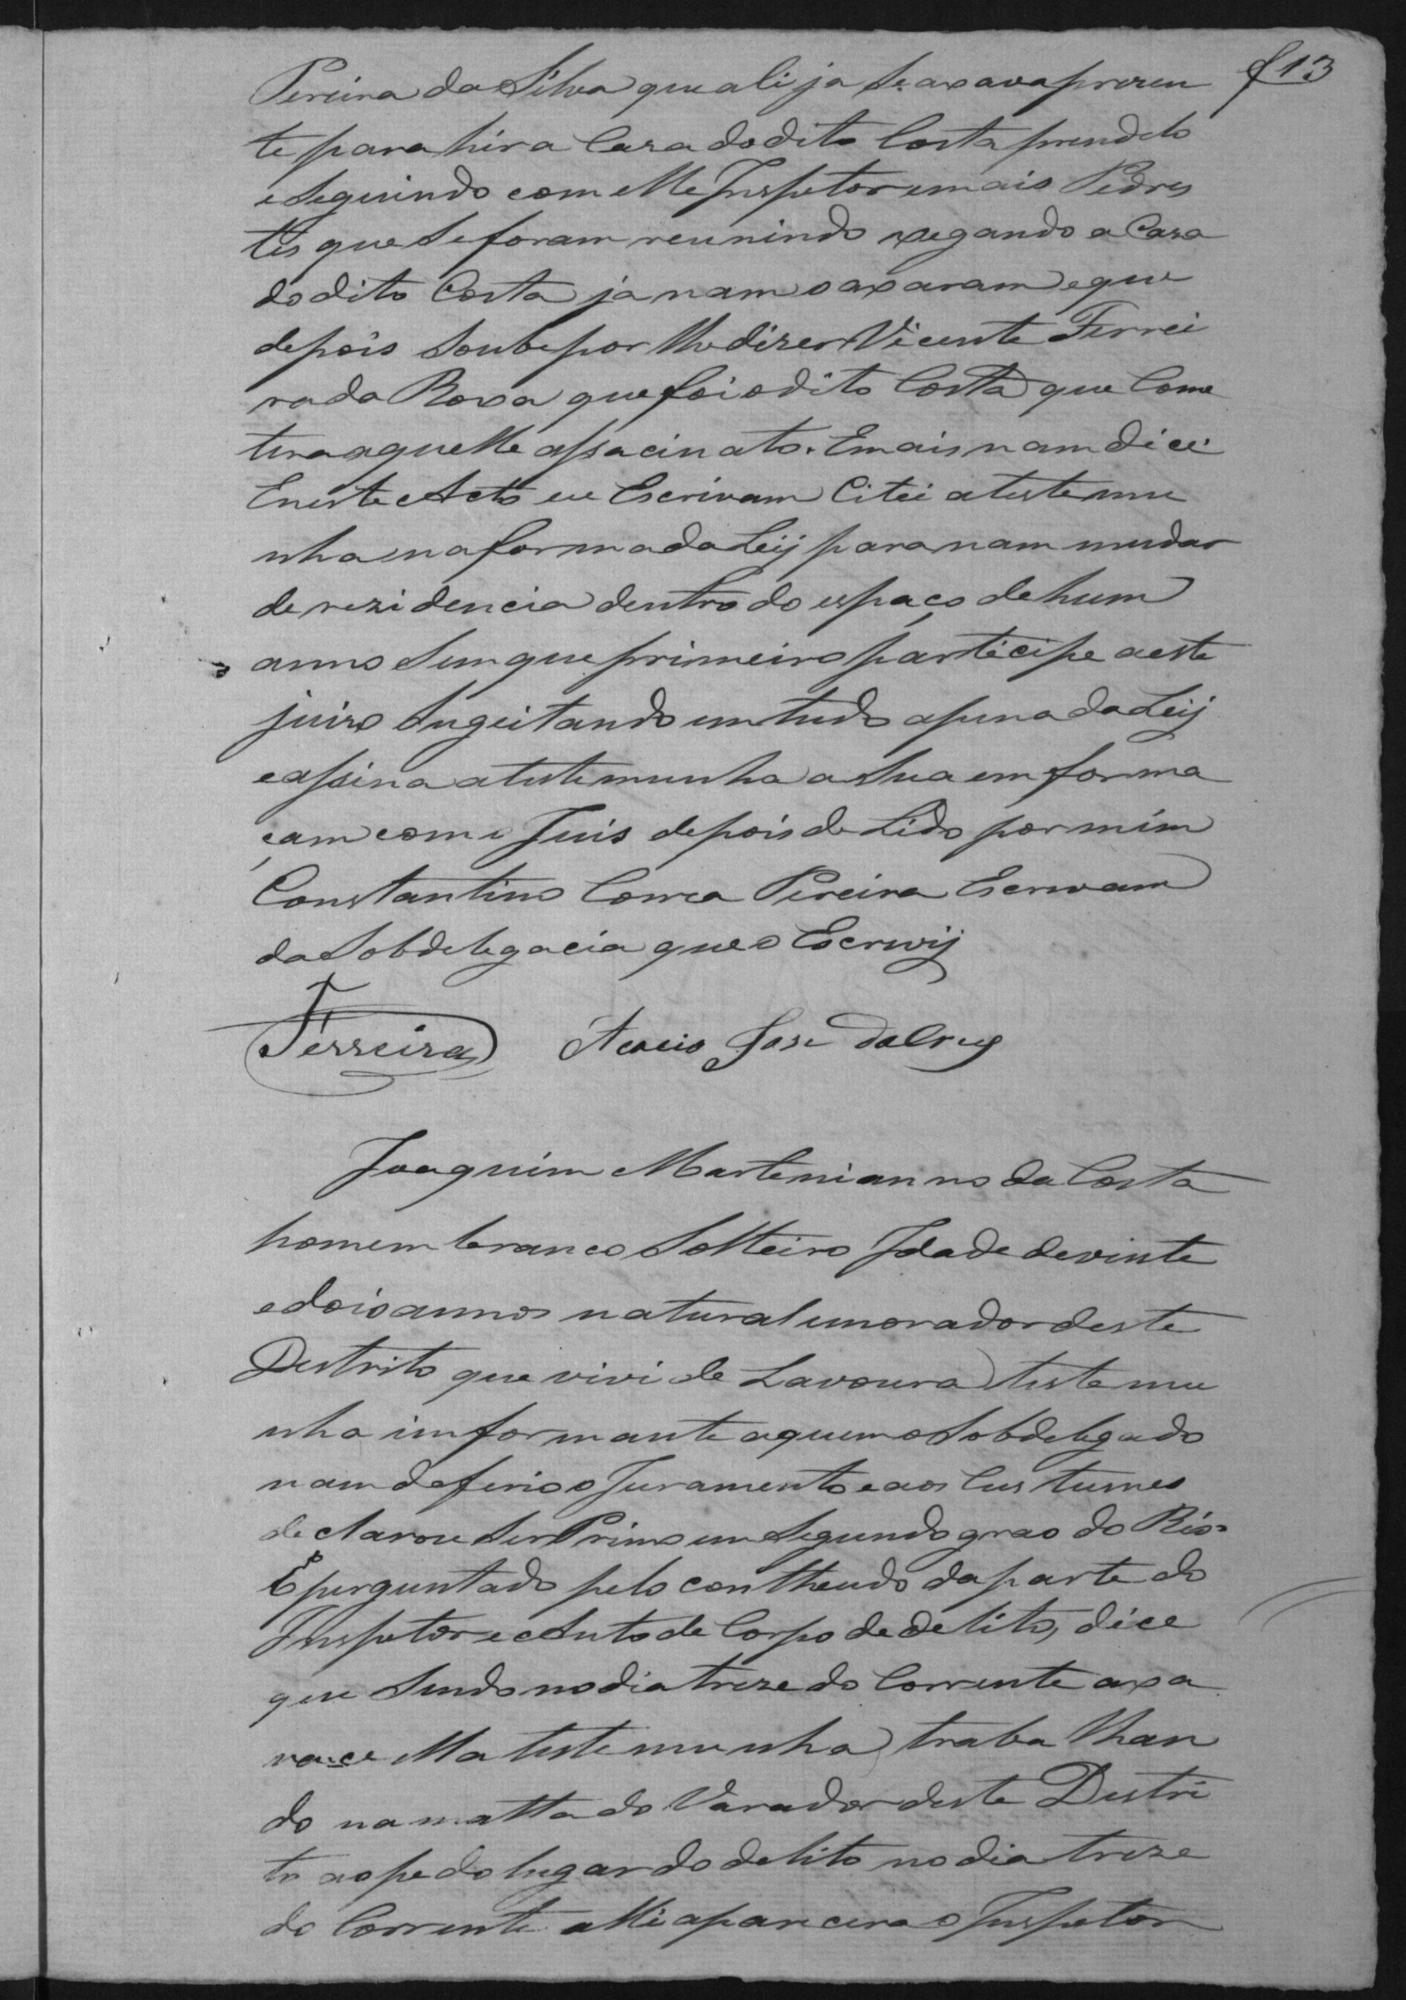 f 13
Pereira da Silva que ali ja Se axava prezen
te para hir a Caza do dito Costa prendelo
e Seguindo com elle Inspetor e mais Pedres
tes que Se foram reunindo xegando a Caza
do dito Costa ja nam o axaram e que
depois Soube por lhe dizer Vicente Ferrei
ra da Roxa que foi o dito Costa que Come
tera aquelle assacinato. E mais nam dice
E neste Acto eu Escrivam Citei a testemu
nha na forma da Leij para nam mudar
de rezidencia dentro do espaço de hum
anno Sem que primeiro participe a este
juizo Sugeitando em tudo a pena da Leij
e assina a testemunha a Sua emforma
çam com o Juis depois de Lido por mim
Constantino Correa Pereira Escrivam
da Sobdelegacia que o Escrevij
Ferreira Acacio Jose da Cruz
Joaquim Martenianno da Costa
homem branco Solteiro Idade de vinte
e dois annos natural e morador deste
Destrito que vivi de Lavoura testemu
nha imformante a quem o Sobdelegado
nam deferio o Juramento e aos Custumes
declarou Ser Primo em Segundo grao do Réo
E perguntado pelo contheudo da parte do
Inspetor e Auto de Corpo de delito, dice
que Sendo no dia treze do Corrente axa
va-ce elle testemunha trabalhan
do na matta do Varador deste Destri
to ao pe do lugar do delito no dia treze
do Corrente alli aparecera o Inspetor